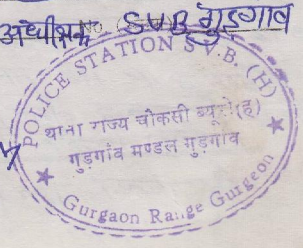 अधीक्षक SVB गुड़गाव
POLICE STATION S.V.B. (H)
थाना राज्य चोकसी ब्यूरो (ह)
गुड़गांव मण्डल गुड़गाव
Gurgaon Range Gurgeon